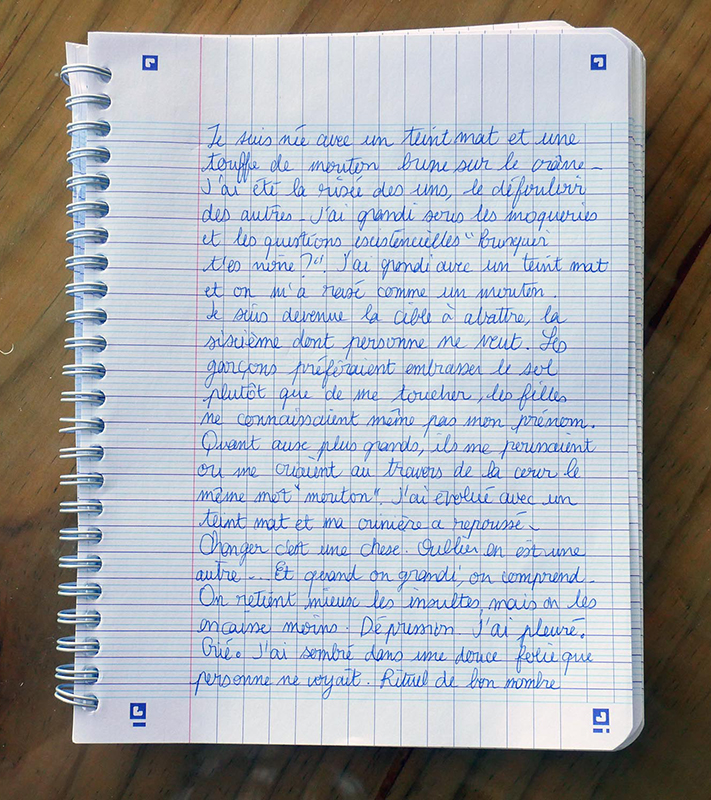 Je suis née avec un teint mat et une
touffe de mouton brune sur le crâne_
J'ai été la risée des uns, le défouloir
des autres_ J'ai grandi sous les moqueries
et les questions existencielles "Pourquoi
t'es noire?". J'ai grandi avec un teint mat
et on m'a rasé comme un mouton.
Je suis devenue la cible à abattre, la
sixième dont personne ne veut. Les
garçons préféraient embrasser le sol
plutôt que de me toucher, les filles
ne connaissaient même pas mon prénom.
Quant aux plus grands, ils me
ou me criaient au travers de la cour le
même mot "mouton". J'ai evolué avec un
teint mat et ma crinière a repoussé_
Changer c'est une chose. Oublier en est une
autre... Et quand on grandi, on comprend_
On retient mieux les insultes, mais on les
encaisse moins. Dépression. J'ai pleuré.
Crié. J'ai sombré dans une douce folie que
personne ne voyait. Rituel de bon nombre